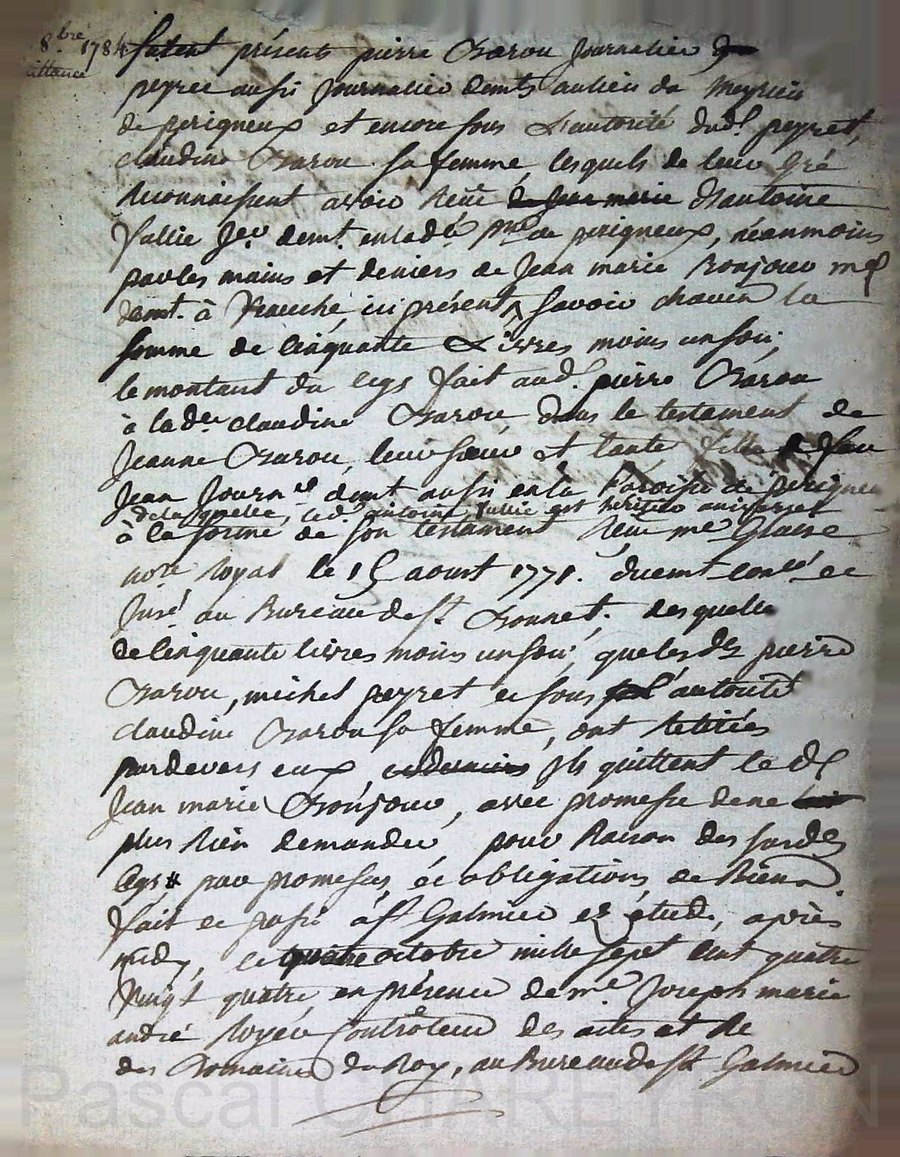 8.bre 1784
quittance
furent présents pierre Barou journalier
peyret aussi journalier demts au lieu de
de perigneux et encore sous l'autorité dud. peyret,
claudine Barou sa femme, lesquels de leur gré
reconnaissent avoir reçu de jean marie d'antoine
fallie demt. en lad. psse de perigneux, néanmoins
par les mains et deniers de jean marie Bonjour md
demt. à ici présent, savoir chacun la
somme de cinquante livres moins un sou,
le montant du legs fait aud. pierre Barou
à lade. claudine Barou, dans le testament de
jeanne Barou, leur soeur et tante fille de feu
jean Journel demt aussi en la paroisse de perigneux
de laquelle led antoine fallie est héritier universel
à la forme de son testament reçu me
nore royal le 15 aoust 1771. duemt conlé et
au Bureau de st. Bonnet. desquelles
cinquante livres moins un sou, que lesds pierre
Barou, michel peyret et sous l'autorité
claudine Barou sa femme, ont retirées
pardevers eux, ils quittent led
jean marie Bonjour, avec promesse de ne
plus rien demander, pour raison des susds
legs par promesses, et obligations de Biens.
fait et passé à st Galmier ez étude, après
midy, le quatre octobre mille sept cent quatre
vingt quatre, en présence de me Joseph marie
andré Royer Contrôleur des actes et Re
des Domaines du Roy, au Bureau de st Galmier
Pascal CHAREYRON